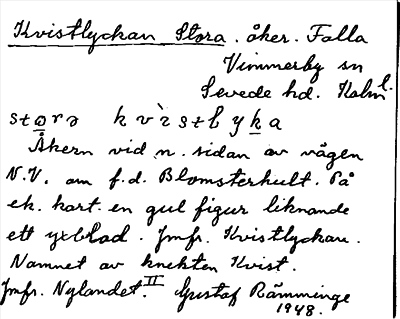 Kvistlyckan Stora. åker. Falla
Vimmerby sn
Sevede hd. Kalm l.
stora kvìstlyka
Åkern vid n. sidan av vägen
N.V. om f.d. Blomsterhult. På
ek. kart. en gul figur liknande
ett yxblad. Jmfr. Kvistlyckan.
Namnet av knekten Kvist.
Jmfr. Nylandet. II Gustaf Rämminge
1948.